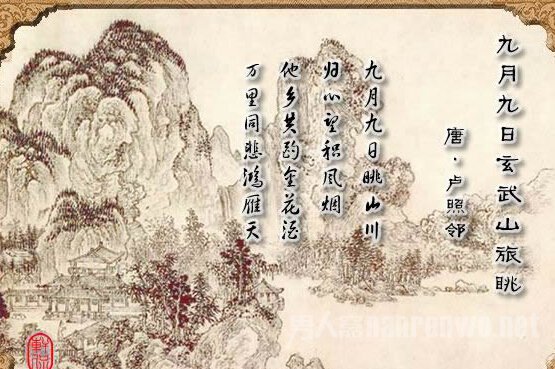 九月九日玄武山旅眺
唐·卢照邻
九月九日眺山川
归心望积风烟
他乡共酌金花酒
万里同悲鸿雁天
男人窝nanrenwo.net